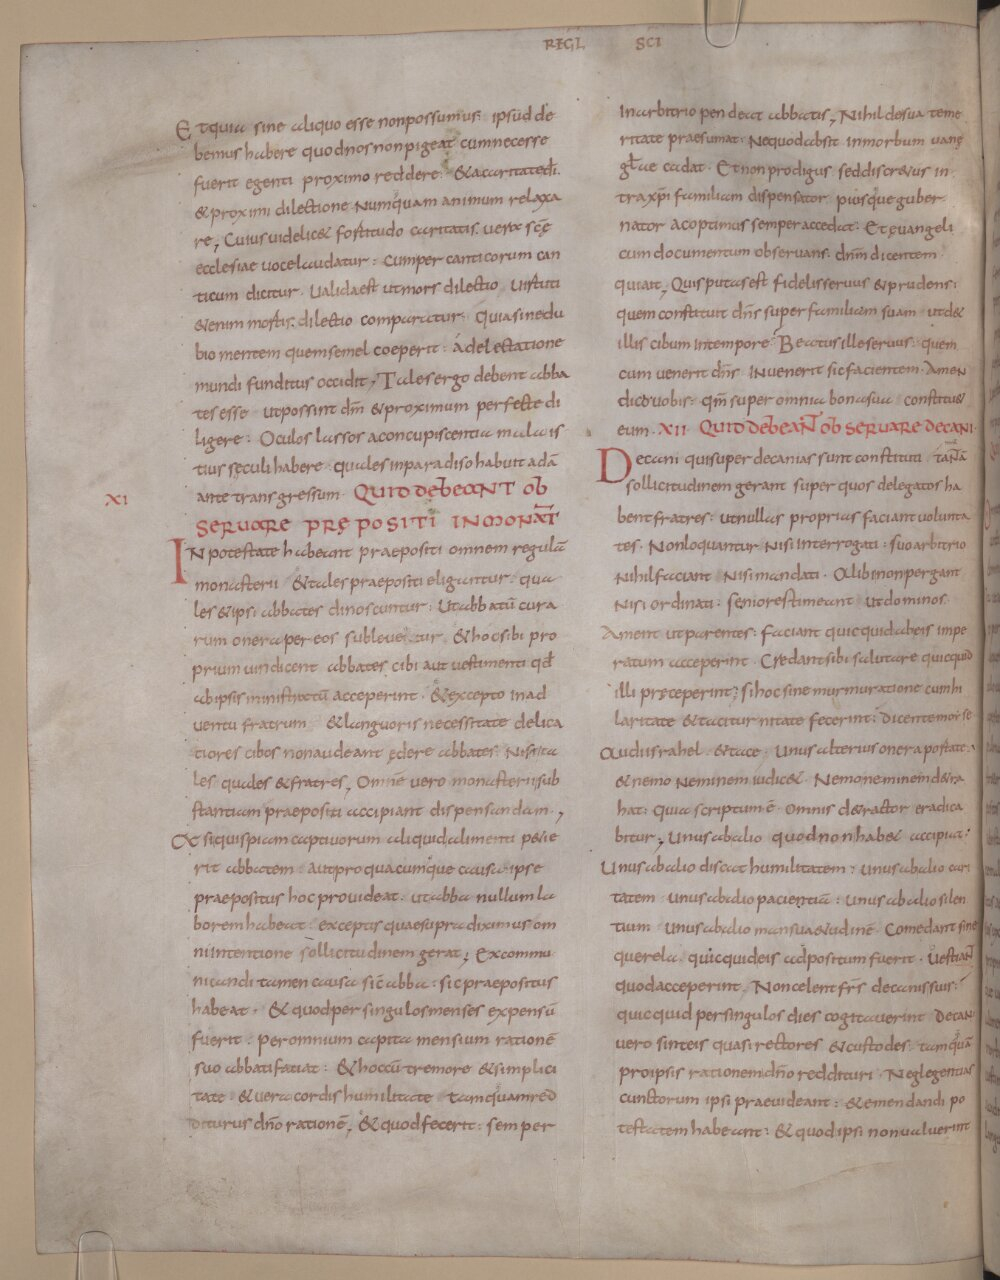 REGL SCI
Et quia sine aliquo esse non possumus. ipsud de
bemus habere quod nos non pigeat cum necesse
fuerit egenti proximo reddere. & a caritate di
& proximi dilectione numquam animum relaxa
re, Cuius videlic& fortitudo caritatis. vera scę
ecclesiae voce laudatur: cum per canticorum can
ticum dicitur. valida est ut mors dilectio, virtuti
&enim mortis. dilectio comparatur. quia sine du
bio mentem quem semel coeperit. a delectatione
mundi funditus occidit, Tales ergo debent abba
tes esse ut possint dm & proximum perfecte di
ligere: Oculos lassos a concupiscentia mala is
tius seculi habere. quales in paradiso habuit adā
ante transgressum. QUID debeANT ob
XI
SERVARE PRĘPOSITI IN MONAT
In potestate habeant praepositi omnem regulā
monasterii & tales praepositi eligantur. qua
les & ipsi abbates dinoscuntur: Ut abbatū cura
rum onera per eos sublevetur. & hoc sibi pro
prium vindicent abbates cibi aut vestimenti qđ
ab ipsis ministratū acceperint. & excepto in ad
ventu fratrum & languoris necessitate delica
tiores cibos non audeant ędere abbates. Nisi ta
les quales & fratres, Omnē vero monasterii sub
stantiam praepositi accipiant dispensandam,
Et si quispiam captivorum aliquid alimenti p&ie
rit abbatem. aut pro quacumque causa ipse
praepositus hoc provideat. ut abba nullum la
borem habeat. exceptis quae supra diximus om
ni intentione sollicitudinem gerat, Excommu
nicandi tamen causa sic abba: sic praepositus
habeat. & quod per singulos menses expensū
fuerit. per omnium capita mensium rationē
suo abbati faciat: & hoc cū tremore & simplici
tate. & vera cordis humilitate. tamquam red
diturus dño rationē, & quod fecerit: semper
in arbitrio pendeat abbatis, Nihil de sua teme
ritate praesumat. Ne quod absit in morbum vanę
glae cadat. Et non prodigus sed discr&us in
tra xpi familiam dispensator. piusque guber
nator ac optimus semper accedat: Et evangeli
cum documentum observans. dnm dicentem.
qui ait, Quis putas est fidelis servus & prudens:
quem constituit dns super familiam suam ut d&
illis cibum in tempore: Beatus ille servus. quem
cum venerit dns invenerit sic facientem. Amen
dico vobis. qm super omnia bona sua constitu&
eum. XII QUID debeANT ob SERVARE decANI.
Decani qui super decanias sunt constituti tantā
sollicitudinem gerant super quos delegatos ha
bent fratres: ut nullus proprias faciant volunta
tes. Non loquantur nisi interrogati: suo arbitrio
nihil faciant nisi mandati. Alibi non pergant
nisi ordinati. seniores timeant ut dominos.
Ament ut parentes: faciant quicquid ab eis impe
ratum acceperint. Credant sibi salutare quicquid
illi pręceperint; si hoc sine murmuratione cum hi
laritate & taciturnitate fecerint: dicente moise
Audi israhel. & tace. Unus alterius onera portate.
& nemo neminem iudic&. Nemo neminem d&ra
hat: quia scriptum ē. Omnis d&ractor eradica
bitur, Unus ab alio quod non hab& accipiat:
Unus ab alio discat humilitatem: unus ab alio cari
tatem. unus ab alio pacientiā: unus ab alio silen
tium. unus ab alio mansua&udinē. Comedant sine
querela. quicquid eis adpositum fuerit. vestiant
quod acceperint, Non celent frs decanis suis:
quicquid per singulos dies cogitaverint Decani
vero sint eis quasi rectores & custodes. tamquā
pro ipsis rationem dño reddituri. Neglegentias
cunctorum ipsi praevideant: & emendandi po
testatem habeant: & quod ipsi non valuerint